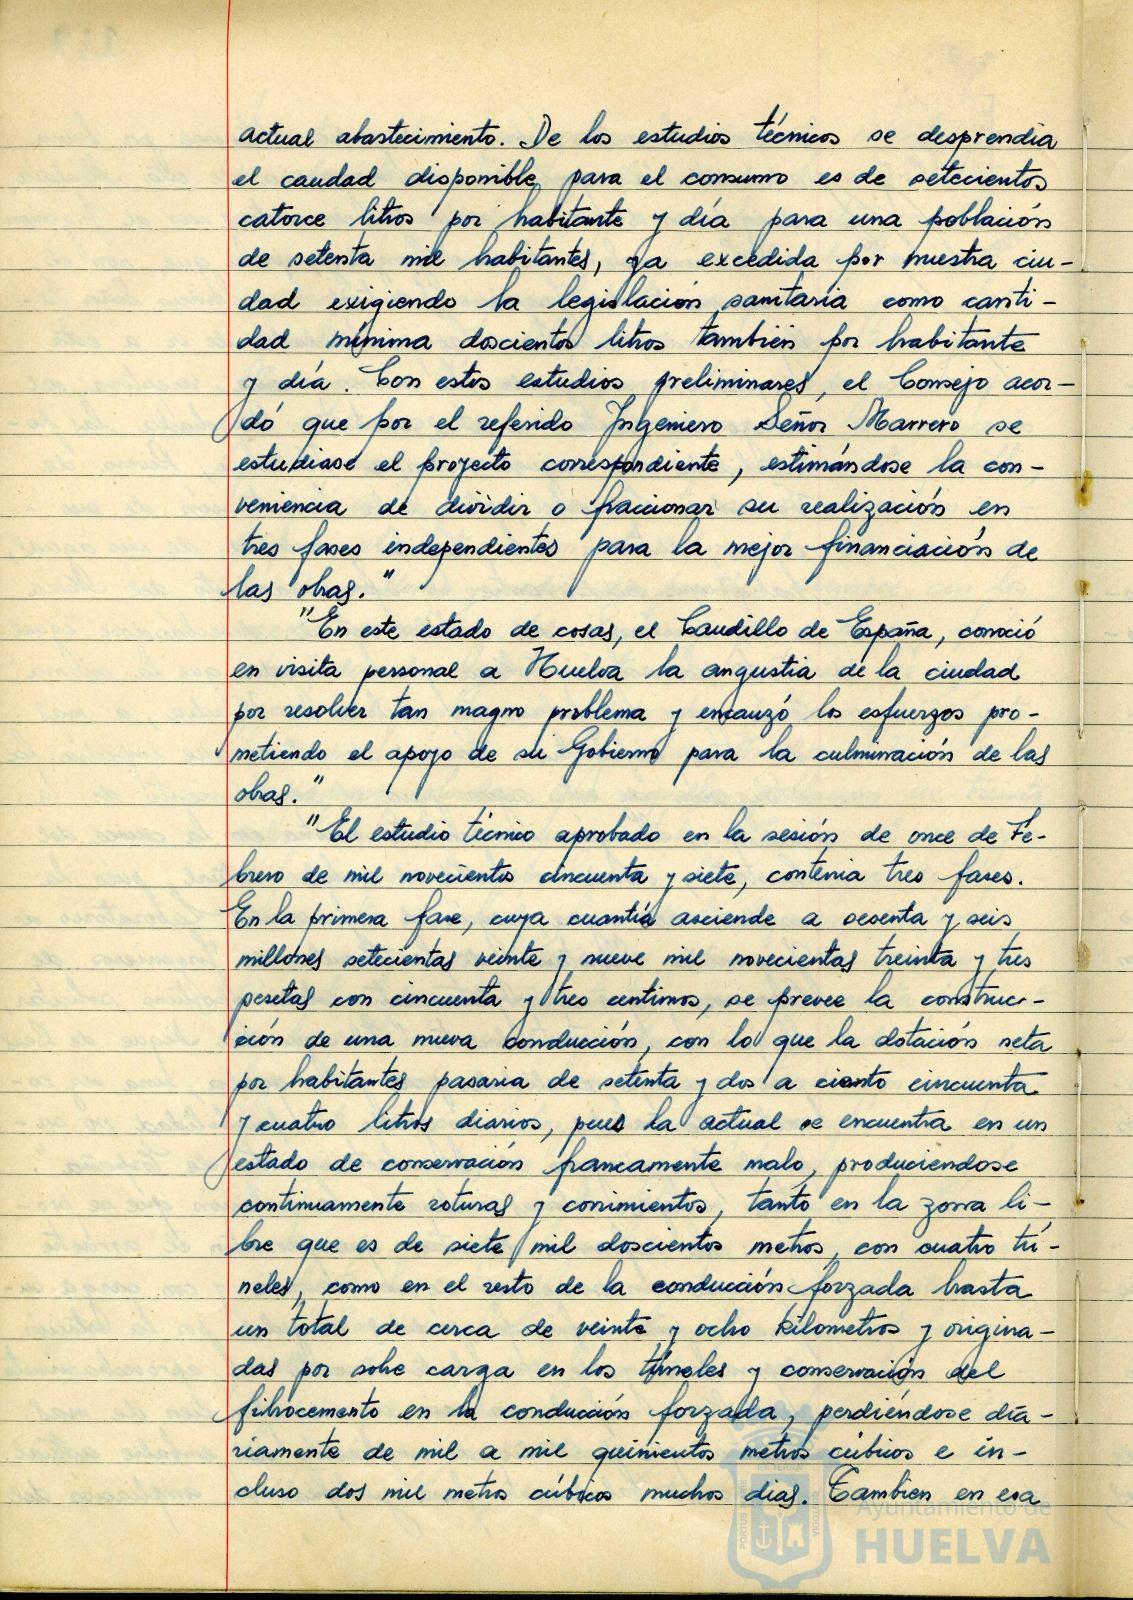 actual abastecimiento. De los estudios técnicos se desprendia
el caudad disponible, para el consumo es de setecientos
catorce litros por habitante y día para una población
de setenta mil habitantes, ya excedida por nuestra ciu-
dad exigiendo la legislación sanitaria como canti-
dad mínima doscientos litros también por habitante
y día. Con estos estudios preliminares, el Consejo acor-
dó que por el referido Ingeniero Señor Marrero se
estudiase el proyecto correspondiente, estimándose la con-
veniencia de dividir o fraccionar su realización en
tres fases independientes para la mejor financiación de
las obras."
"En este estado de cosas, el Caudillo de España, conoció
en visita personal a Huelva la angustia de la ciudad
por resolver tan magno problema y encauzó los esfuerzos pro-
metiendo el apoyo de su Gobierno para la culminación de las
obras."
"El estudio técnico aprobado en la sesión de once de Fe-
brero de mil novecientos cincuenta y siete, contenia tres fases.
En la primera fase, cuya cuantía asciende a sesenta y seis
millones setecientas veinte y nueve mil novecientas treinta y tres
pesetas con cincuenta y tres centimos, se prevee la construc-
ción de una nueva conducción, con lo que la dotación neta
por habitantes pasaria de setenta y dos a ciento cincuenta
y cuatro litros diarios, pues la actual se encuentra en un
estado de conservación francamente malo, produciendose
continuamente roturas y corrimientos, tanto en la zona li-
bre que es de siete mil doscientos metros, con cuatro tú-
neles, como en el resto de la conducción forzada hasta
un total de cerca de veinte y ocho kilometros y origina-
das por sobe carga en los túneles y conservación del
fibrocemento en la conducción forzada, perdiéndose dia-
riamente de mil a mil quinientos metros cúbicos e in-
cluso dos mil metros cúbicos muchos dias. Tambien en esa
Ayuntamiento de
HUELVA
PORTUS
CUSTODIA